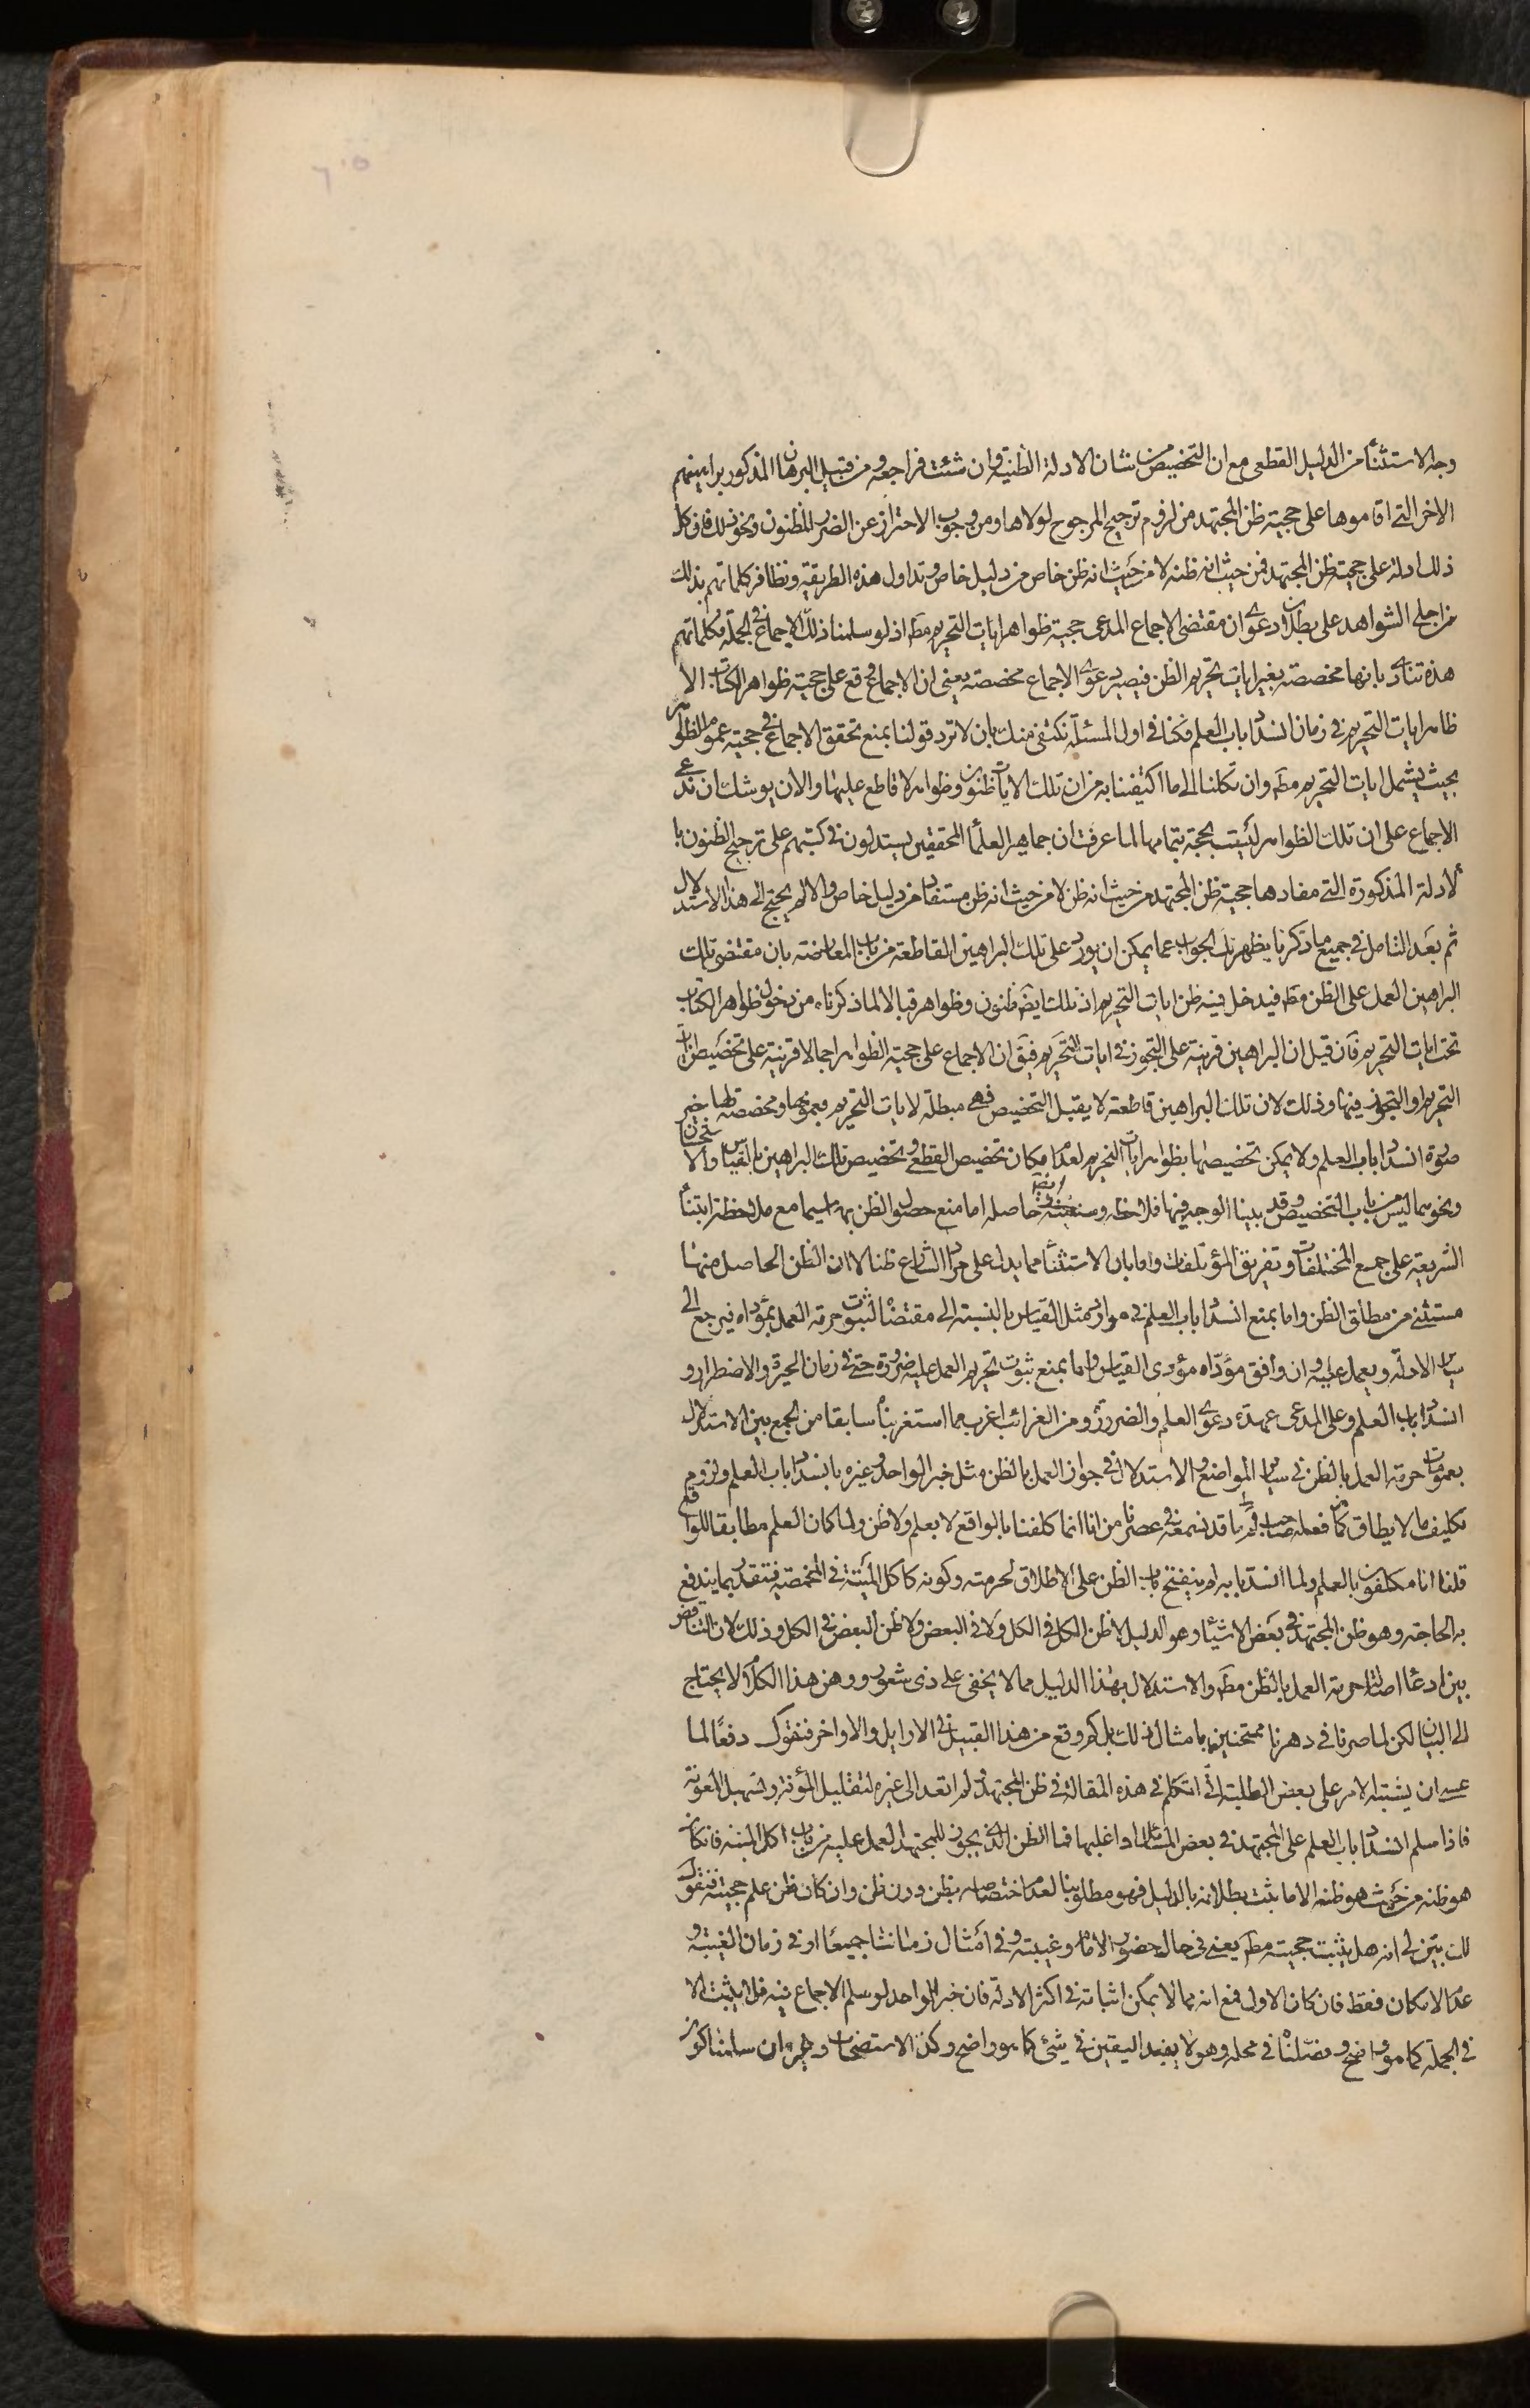 وجه الاستثناء من الدليل القطعى مع ان التخصيص من شان الادلة الظنية وان شئت فراجعه ومن قبيل البرهان المذكور براهينهم
الاخر التى اقاموها على حجية ظن المجتهد من لزوم ترجيح المرجوح لولاها ومن وجوب الاحتراز عن الضرر المظنون ونحو ذلك فان كل
ذلك ادلة على حجية ظن المجتهد من حيث انه ظنه لا من حيث انه ظن خاص من دليل خاص وتداول هذه الطريقة وتظافر كلماتهم بذلك
من اجلى الشواهد على بطلان دعوى ان مقتضى الاجماع المدعى حجية ظواهر ايات التحريم مط اذ لو سلمنا ذلك الاجماع فى الجملة فكلماتهم
هذه تنادى بانها مخصصة بغير ايات تحريم الظن فيصير دعوى الاجماع مخصصة يعنى ان الاجماع وقع على حجية ظواهر الكتاب الا
ظاهر ايات التحريم فى زمان انسداد باب العلم فكنا فى اول المسئلة نكتفى منك بان لا ترد قولنا بمنع تحقق الاجماع فى حجية عموم الظواهر
بحيث يشمل ايات التحريم مط وان تكلنا الى ما اكتفينا به من ان تلك الايات ظنون وظواهر لا قاطع عليها والان يوشك ان ندعى
الاجماع على ان تلك الظواهر ليست بحجة بتمامها لما عرفت ان جماهير العلماء المحققين يستدلون فى كتبهم على ترجيح الظنون با
لادلة المذكورة التى مفادها حجية ظن المجتهد من حيث انه ظن لا من حيث انه ظن مستفاد من دليل خاص والا لم يحتج الى هذا الاستدلال
ثم بعد التامل فى جميع ما ذكرنا يظهر لك الجواب عما يمكن ان يورد على تلك البراهين القاطعة من باب المعارضة بان مقتضى تلك
البراهين العمل على الظن مط فيدخل فيه ظن ايات التحريم اذ تلك ايض ظنون وظواهر قبالا لما ذكرناه من دخول ظواهر الكتاب
تحت ايات التحريم فان قيل ان البراهين قرينة على التجوز فى ايات التحريم فيق ان الاجماع على حجية الظواهر اجمالا قرينة على تخصيص ايات
التحريم او التجوز فيها وذلك لان تلك البراهين قاطعة لا يقبل التخصيص فهى مبطلة لايات التحريم بعمومها ومخصصة لها حين
صورة انسداد باب العلم ولا يمكن تخصيصها بظواهر ايات التحريم لعدم امكان تخصيص القطعى وتخصيص تلك البراهين بالقياس والاستحسان
ونحوهما ليس من باب التخصيص وقد بينا الوجه فيها فلاحظه وسنعيد فى حاصله اما منع حصول الظن بهما سيما مع ملاحظة ابتناء
الشريعة على جمع المختلفات وتفريق المؤتلفات واما بان الاستثناء مما يدل على مراد الشارع ظنا لا ان الظن الحاصل منها
مستثنى من مطلق الظن واما بمنع انسداد باب العلم فى موارد مثل القياس بالنسبة الى مقتضاه لثبوت حرمة العمل بمؤداه فيرجع الى
سائر الادلة ويعمل عليه وان وافق مؤداه مؤدى القياس واما بمنع ثبوت تحريم العمل عليه ضرورة حتى فى زمان الحيرة والاضطرار و
انسداد باب العلم وعلى المدعى عهدة دعوى العلم والضرورة ومن الغرائب اغرب مما استغربناه سابقا من الجمع بين الاستدلال
بعمومات حرمة العمل بالظن فى سائر المواضع والاستدلال فى جواز العمل بالظن مثل خبر الواحد وغيره بانسداد باب العلم ولزوم
تكليف ما لا يطاق كما فعله صاحب لم ما قد نسمعه فى عصرنا من انا انما كلفنا بالواقع لا بعلم ولا ظن ولما كان العلم مطابقا للواقع
قلنا انا مكلفون بالعلم ولما انسد بابه لم ينفتح باب الظن على الاطلاق لحرمته وكونه كاكل الميتة فى المخمصة فتقدر بما يندفع
به الحاجة وهو ظن المجتهد فى بعض الاشياء وهو الدليل لا ظن الكل فى الكل ولا فى البعض ولا ظن البعض فى الكل وذلك لان التناقض
بين ادعاء اصالة حرمة العمل بالظن مط والاستدلال بهذا الدليل مما لا يخفى على ذى شعور ووهن هذا الكلام لا يحتاج
الى البيان لكن لما صرنا فى دهرنا ممتحنين بامثال ذلك بل كم وقع من هذا القبيل فى الاوايل والاواخر فنقول دفعا لما
عسى ان يشتبه الامر على بعض الطلبة انى اتكلم فى هذه المقالة فى ظن المجتهد ولم اتعد الى غيره لتقليل المؤنة وتسهيل المعونة
فاذا سلم انسداد باب العلم على المجتهد فى بعض المسائل او اغلبها فما الظن الذى يجوز للمجتهد العمل عليه من باب اكل الميتة فان كان
هو ظنه من حيث هو ظنه الا ما ثبت بطلانه بالدليل فهو مطلوبنا لعدم اختصاصه بظن دون ظن وان كان ظن علم حجيته فنقول
لك بين لى انه هل يثبت حجيته مط يعنى فى حال حضور الامام وغيبته وفى امثال زماننا جميعا او فى زمان الغيبة و
عدم الامكان فقط فان كان الاول فمع انه مما لا يمكن اثباته فى اكثر الادلة فان خبر الواحد لو سلم الاجماع فيه فلا يثبت الا
فى الجملة كما هو واضح وفصلناه فى محله وهو لا يفيد اليقين فى شئ كما هو واضح وكذا الاستصحاب وغيره ان سلمنا كون